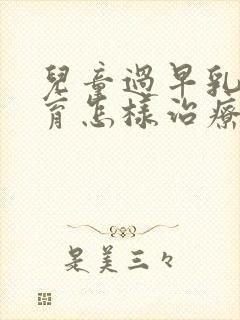 兒童過早乳
育怎樣治療
是美三々